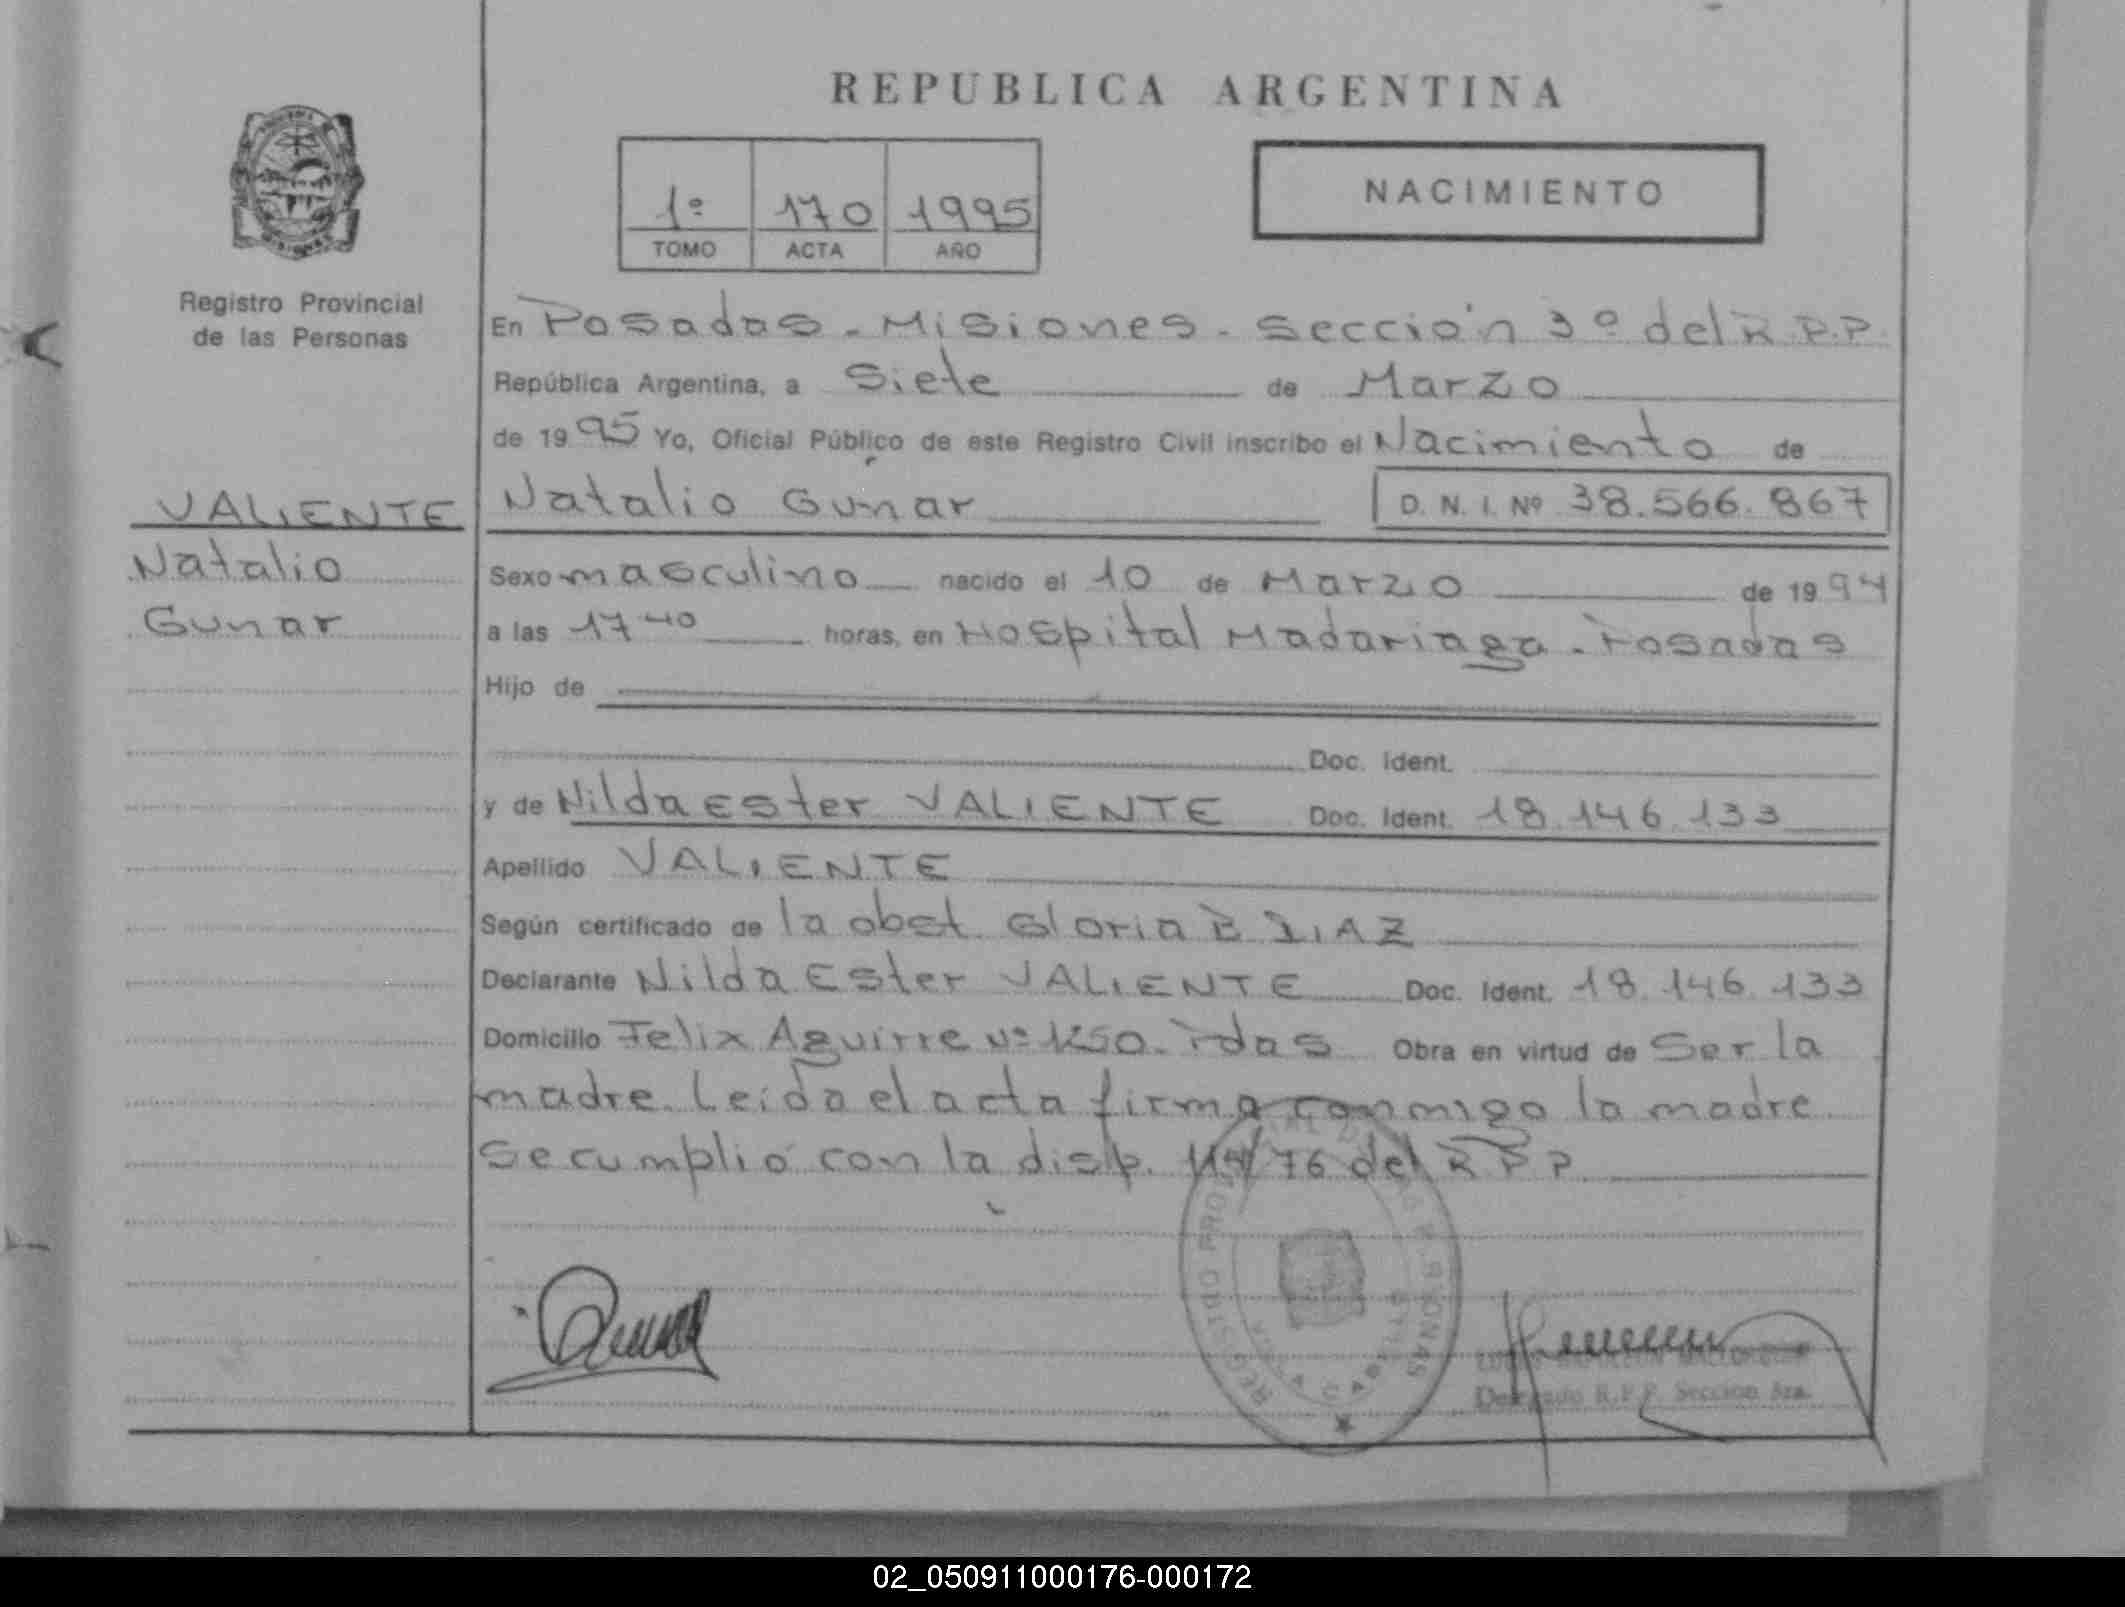 REPUBLICA ARGENTINA
1º 170 1995
TOMO ACTA AÑO
NACIMIENTO
Registro Provincial
de las Personas
En Posadas - Misiones - Sección 3º del R.P.P.
República Argentina, a Siete de Marzo
de 1995 Yo, Oficial Público de este Registro Civil inscribo el Nacimiento de
VALIENTE
Natalio
Gunar
Natalio Gunar D. N. I. Nº 38.566.867
Sexo masculino nacido el 10 de Marzo de 1994
a las 17 40 horas, en Hospital Madariaga - Posadas
Hijo de
Doc. Ident.
y de Nilda Ester VALIENTE Doc. Ident. 18.146.133
Apellido VALIENTE
Según certificado de la obst. Gloria B DIAZ
Declarante Nilda Ester VALIENTE Doc. Ident. 18.146.133
Domicilio Felix Aguirre Nº 1250 - Pdas Obra en virtud de Ser la
madre. Leída el acta firma conmigo la madre
Se cumplió con la disp. 114/76 del R P P
REGISTRO PROVINCIAL DE LAS PERSONAS
Delegado R.P.P. Sección 3ra.
02_050911000176-000172